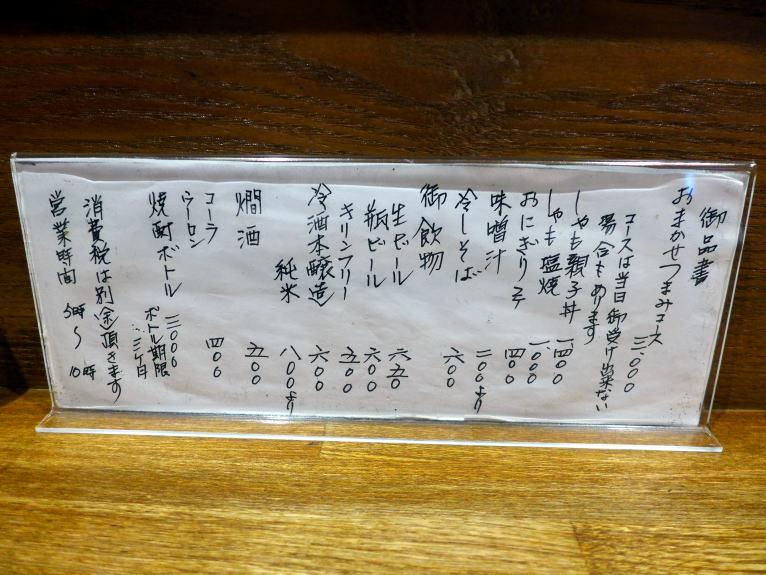 御品書
おまかせつまみコース 三、000
コースは当日御受け出来ない
場合もあります
しゃも親子丼 一、四00
しゃも塩焼 一、000
おにぎり 四00
味噌汁 二00より
冷しそば 六00
御飲物
生ビール 六五0
瓶ビール 六00
キリンフリー 五00
冷酒本醸造 六00
純米 八00より
燗酒 五00
コーラ
ウーロン 四00
焼酎ボトル 三000
ボトル期限
三ヶ月
消費税は別(金)頂きます
営業時間 5時〜10時